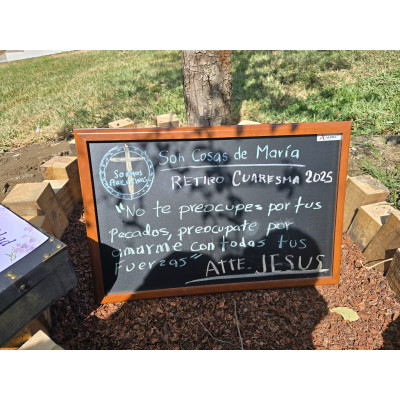 Son Cosas de María
RETIRO CUARESMA 2025
"No te preocupes por tus
pecados, preocupate por
amarme con todas tus
Fuerzas"
ATTE. JESUS